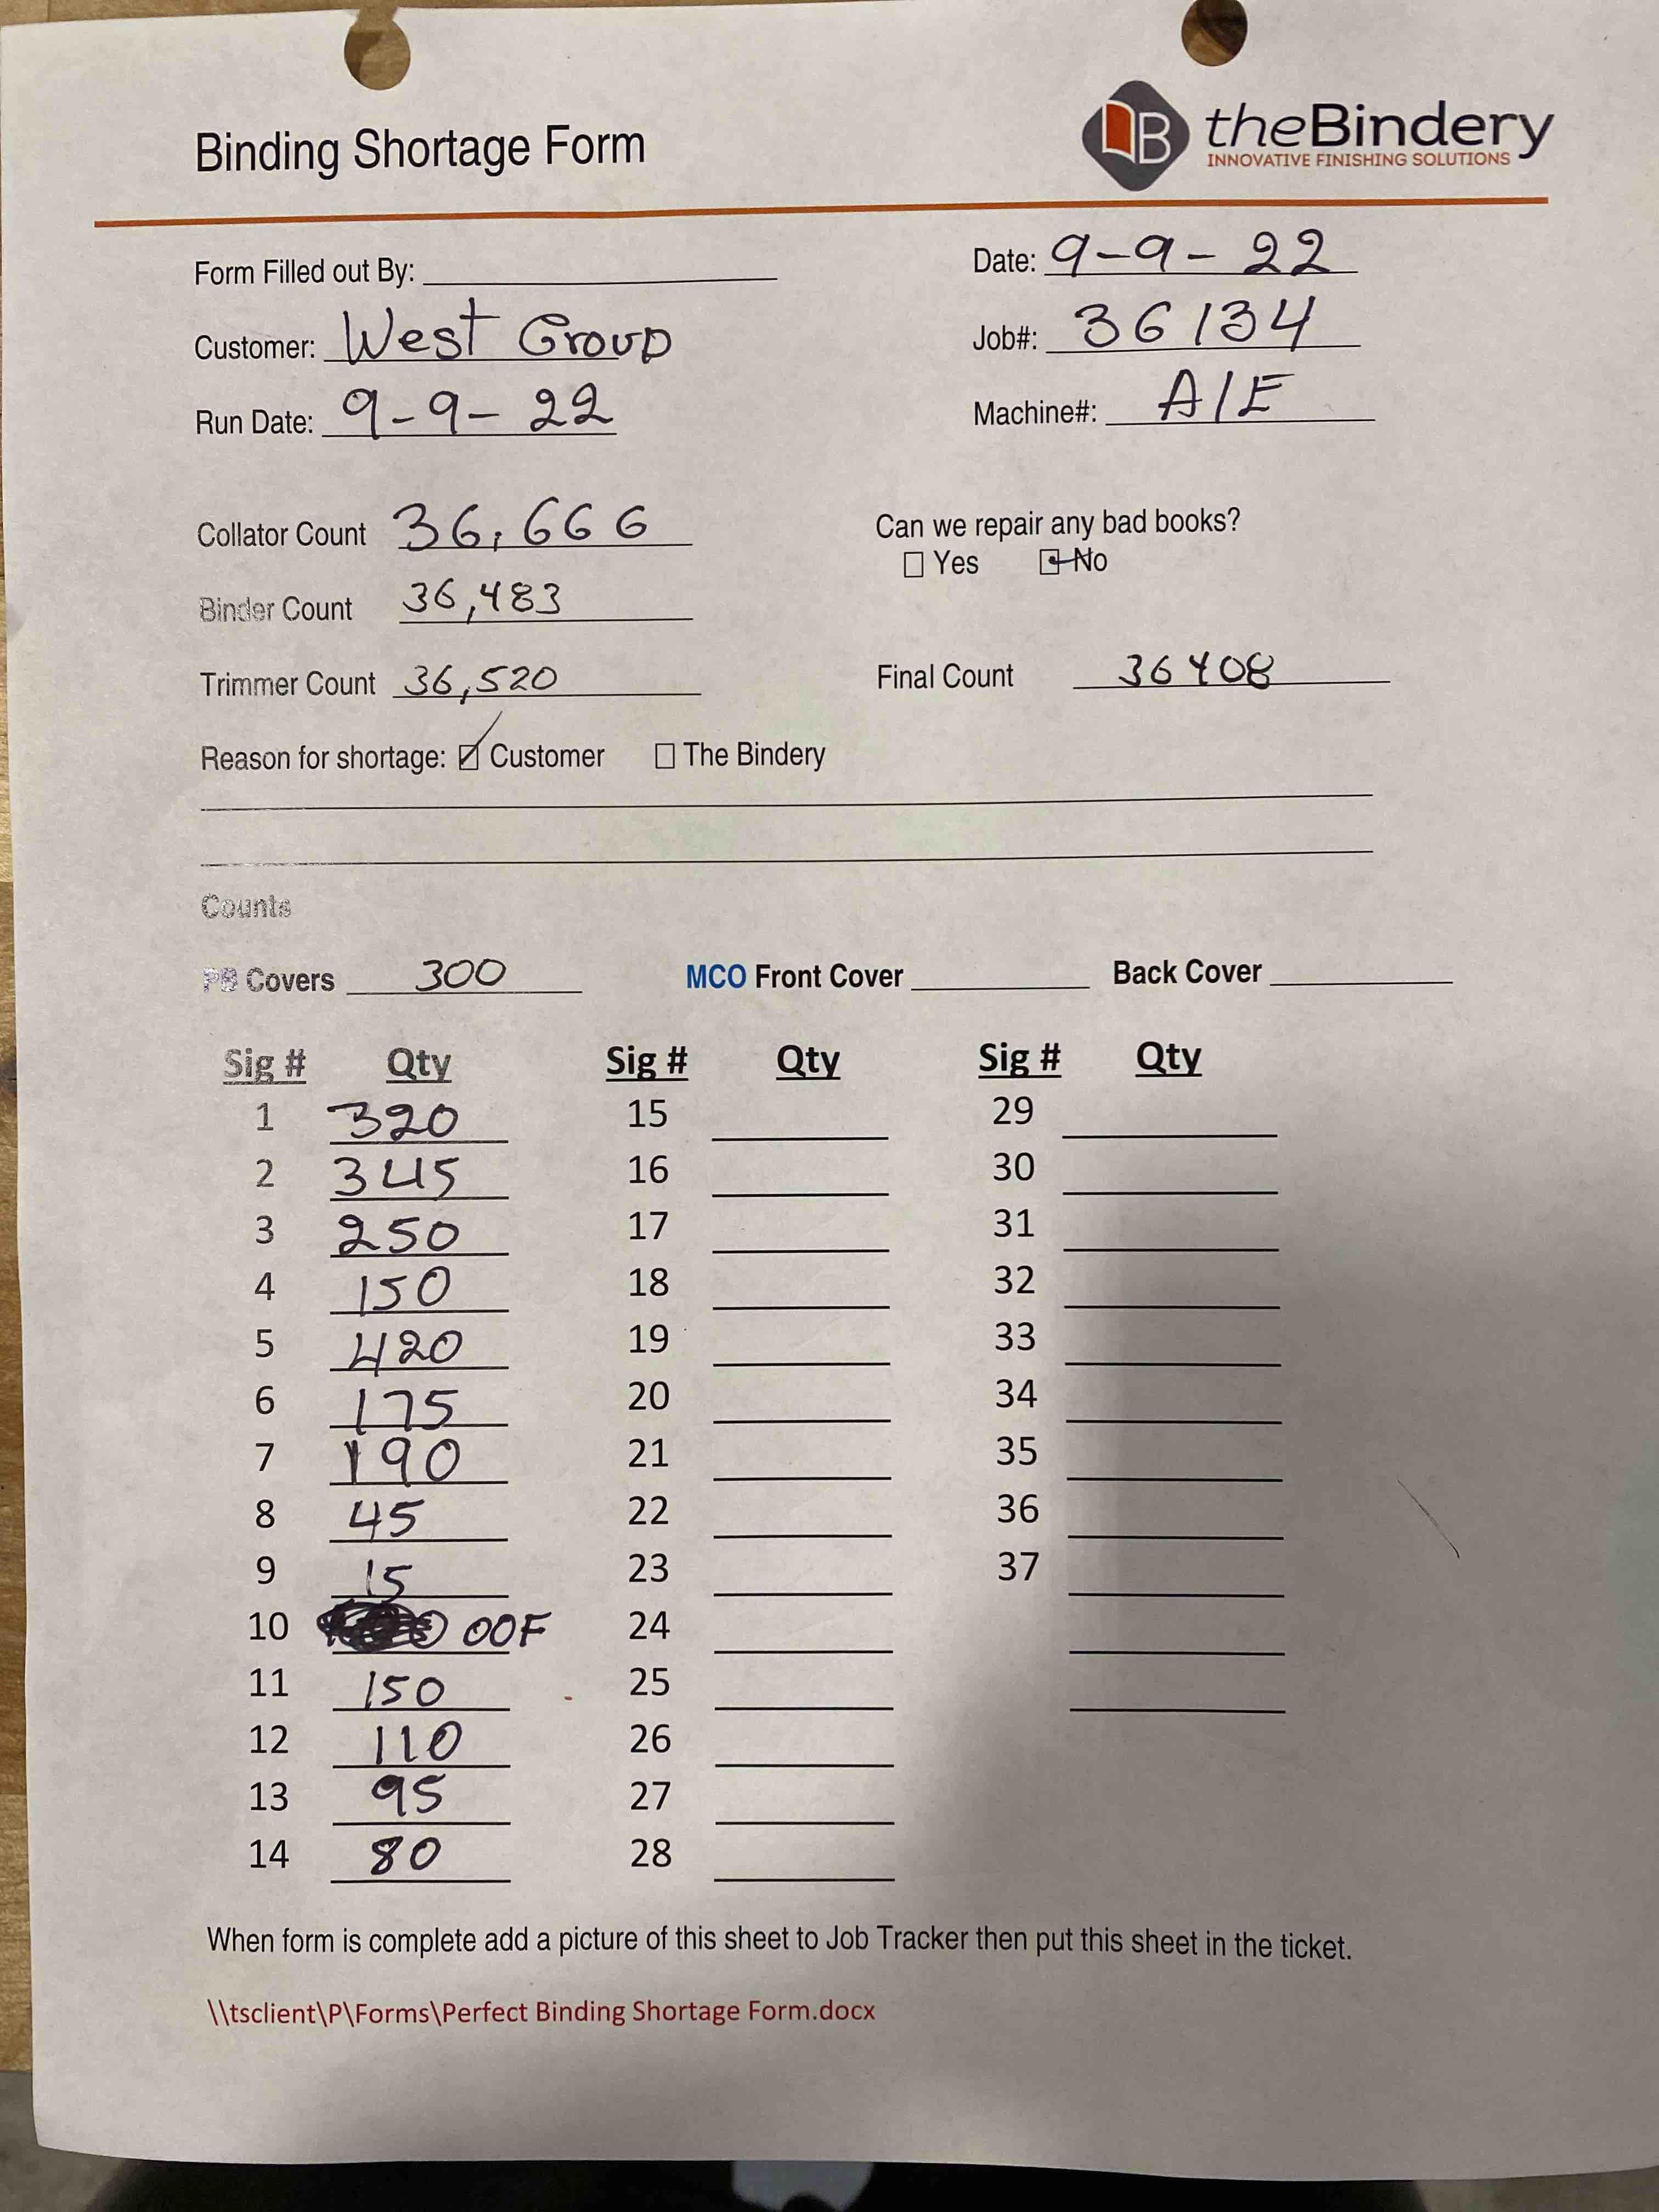 Binding Shortage Form
theBindery
INNOVATIVE FINISHING SOLUTIONS
Form Filled out By:
Date: 9-9-22
Customer: West Group
Job#: 36134
Run Date: 9-9-22
Machine#: A/E
Collator Count 36,666
Can we repair any bad books?
Yes No
Binder Count 36,483
Trimmer Count 36,520
Final Count 36408
Reason for shortage: Customer The Bindery
Counts
PB Covers 300 MCO Front Cover Back Cover
Sig # Qty Sig # Qty Sig # Qty
1 320 15 29
2 345 16 30
3 250 17 31
4 150 18 32
5 420 19 33
6 175 20 34
7 190 21 35
8 45 22 36
9 15 23 37
10 OOF 24
11 150 25
12 110 26
13 95 27
14 80 28
When form is complete add a picture of this sheet to Job Tracker then put this sheet in the ticket.
\\tsclient\P\Forms\Perfect Binding Shortage Form.docx